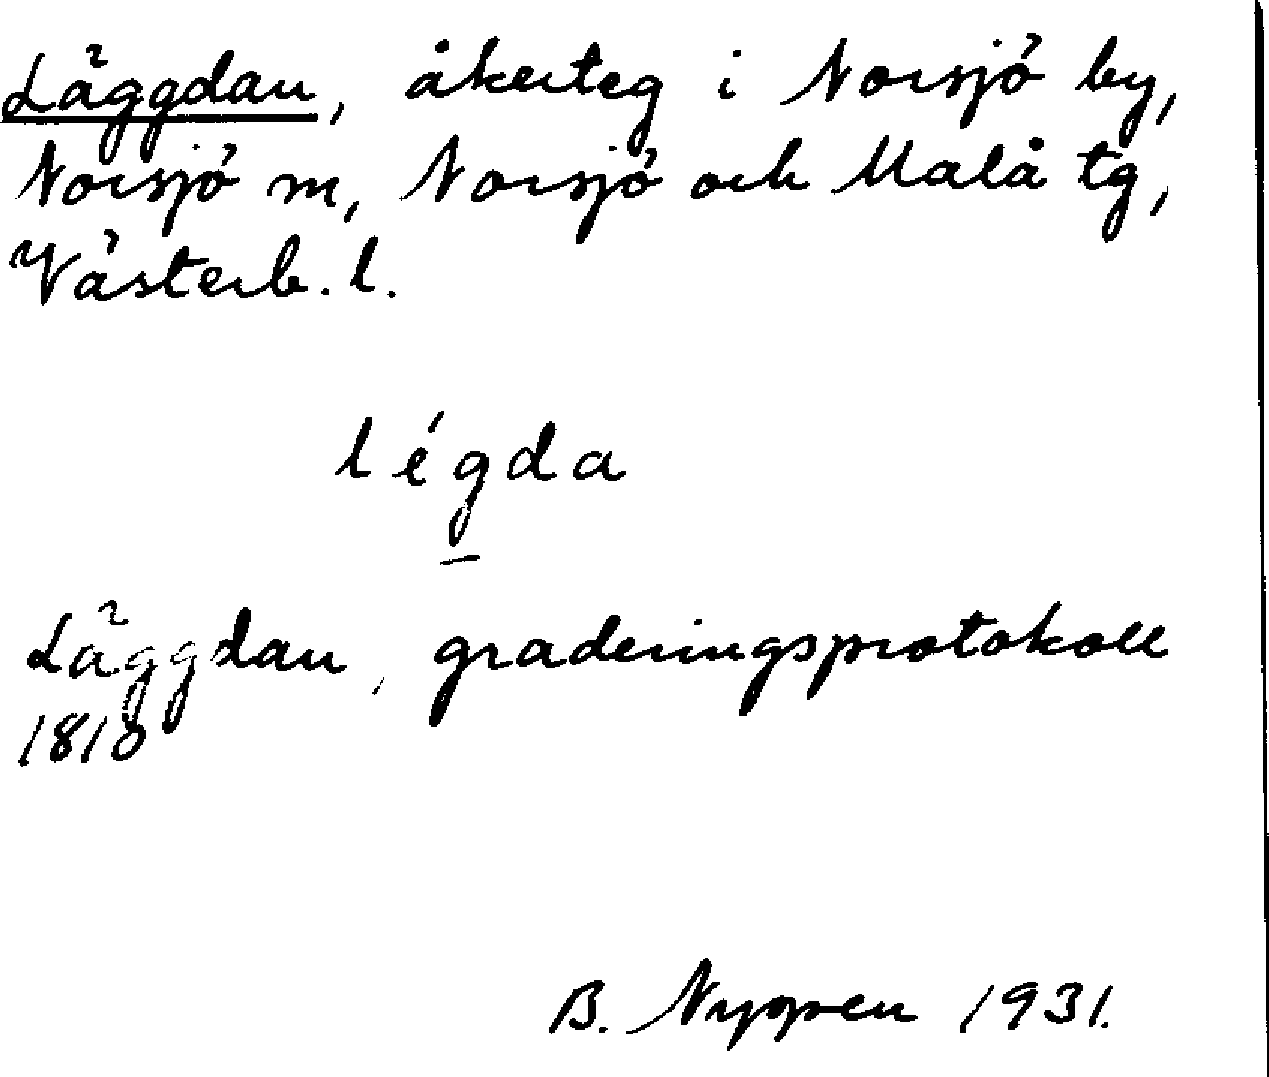 Läggdan, åkerteg i Norsjö by,
Norsjö m, Norsjö och Malå tg,
Västerb. l.
légda
Läggdan, graderingsprotokoll
1810
B. 1931.